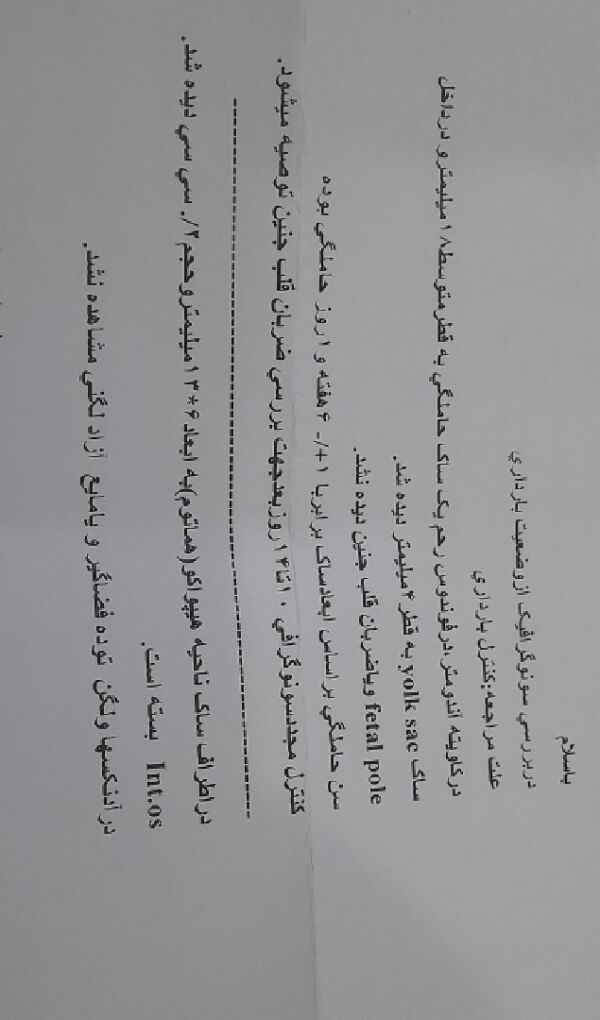 باسلام
دربررسي سونوگرافيک ازوضعيت بارداري
علت مراجعه:کنترل بارداري
درکاويته آندومتر،درفوندوس رحم يک ساک حاملگي به قطرمتوسط۱۸ميليمترو درداخل
ساک yolk sac به قطر۴ميليمتر ديده شد.
fetal pole وياضربان قلب جنين ديده نشد.
سن حاملگي براساس ابعادساک برابربا ۱+/- ۶هفته و ۱روز حاملگي بوده
کنترل مجددسونوگرافي ۱۰تا۱۴روزبعدجهت بررسي ضربان قلب جنين توصيه ميشود.
دراطراف ساک ناحيه هيپواکو(هماتوم)به ابعاد۶*۱۳ميليمتروحجم۲/. سي سي ديده شد.
Int.os بسته است.
درآدنکسها ولگن توده فضاگير و يامايع آزاد لگني مشاهده نشد.